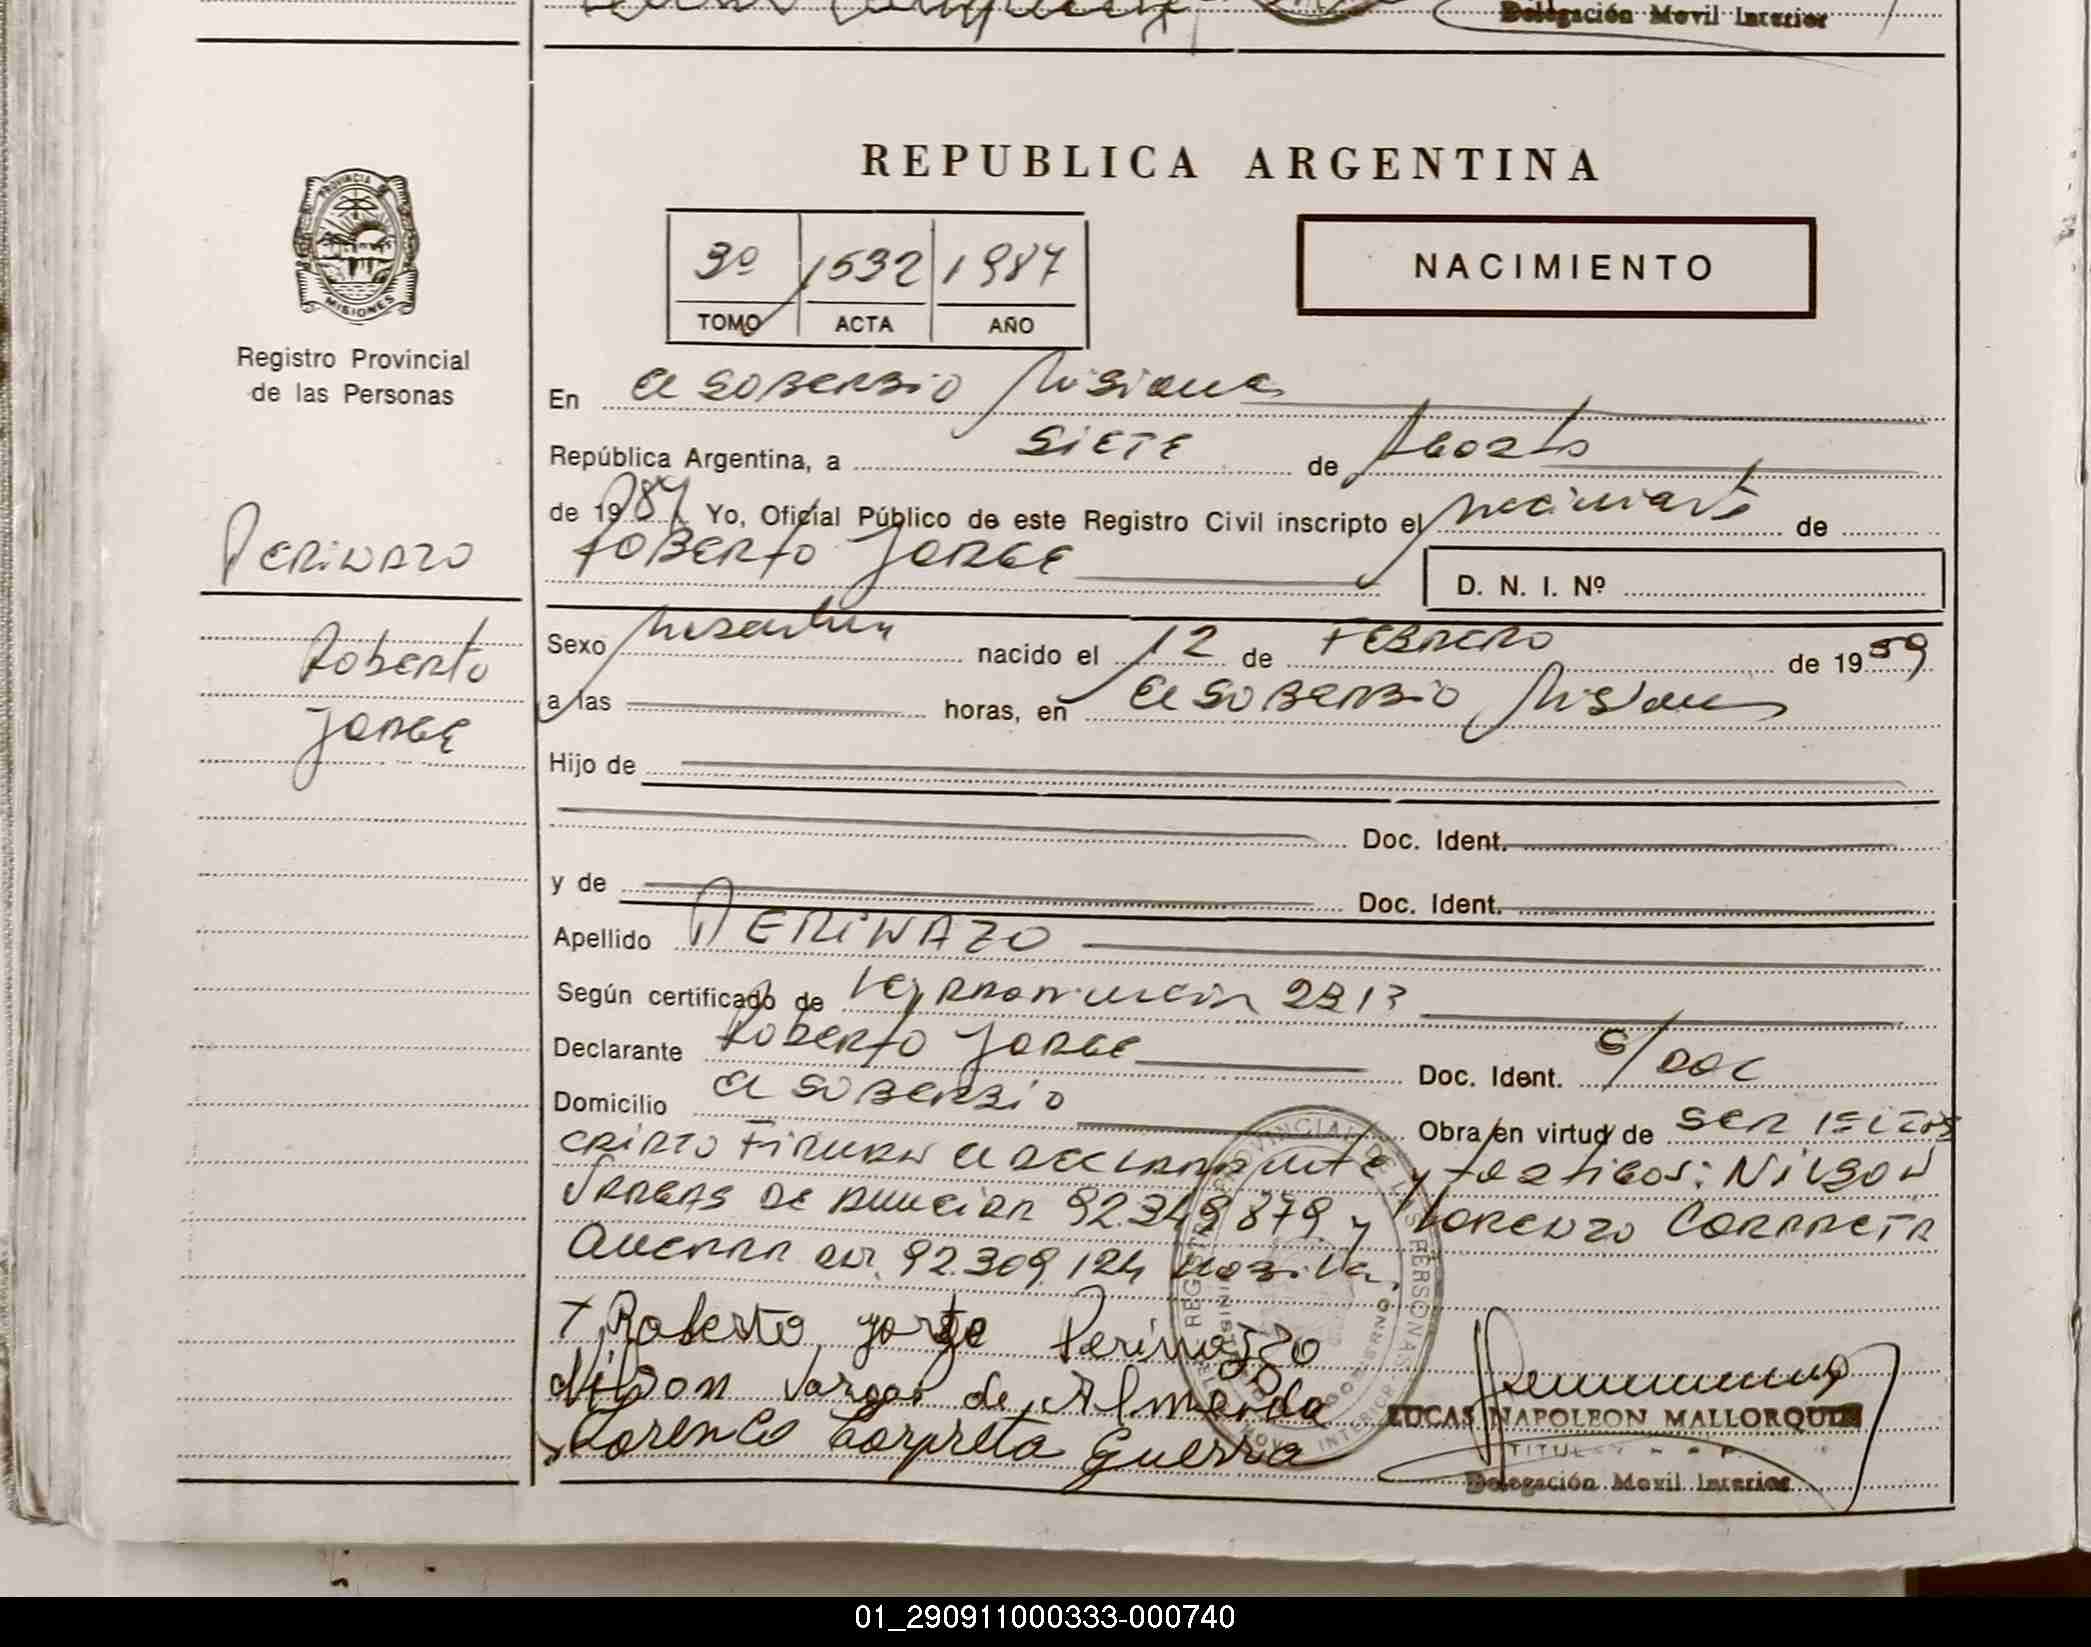 Delegación Movil Interior
REPUBLICA ARGENTINA
PROVINCIA DE
MISIONES
3º 1532 1987
TOMO ACTA AÑO
NACIMIENTO
Registro Provincial
de las Personas
En El SOBERBIO Misiones
República Argentina, a SIETE de Agosto
de 1987 Yo, Oficial Público de este Registro Civil inscripto el nacimiento de
PERINAZO
ROBERTO JORGE
D. N. I. Nº
Roberto
JORGE
Sexo Masculino nacido el 12 de FEBRERO de 1959
a las horas, en El SOBERBIO Misiones
Hijo de
Doc. Ident.
y de Doc. Ident.
Apellido PERINAZO
Según certificado de Ley 2213
Declarante ROBERTO JORGE Doc. Ident. S/DOC
Domicilio El SOBERBIO Obra en virtud de SER
FIRMAN El DECLARANTE y testigos: NILSON
VARGAS DE 92.349.879 y LORENZO CORPRETA
GUERRA 92.309.124
Roberto Jorge Perinazzo
Nilson Vargas de Almeida
Lorenco Corpreta Guerra
LUCAS NAPOLEON MALLORQUIN
TITULAR
Delegación Movil Interior
01_290911000333-000740